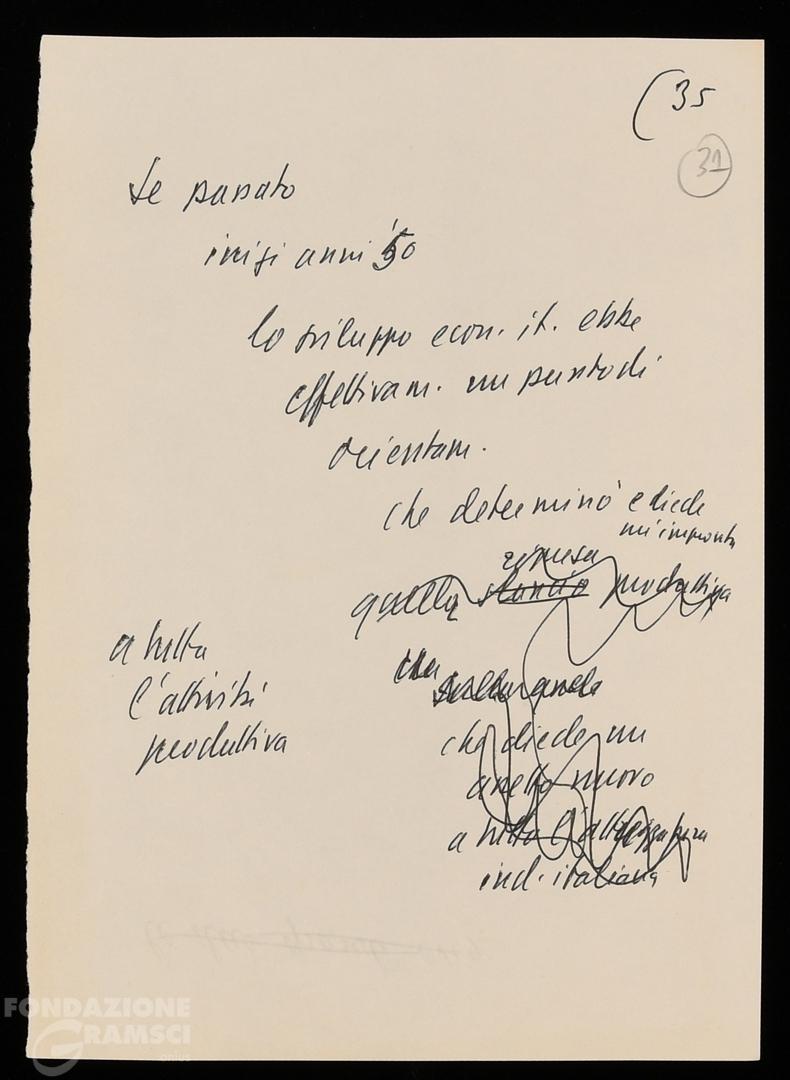 (35
31
Se passato
inizi anni '50
lo sviluppo econ. it. ebbe
effettivam. un punto di
orientam.
che determinò e diede
un'impronta
ripresa
quella slancio produttiva
a tutta
l'attività
produttiva
che
che diede un
assetto nuovo
a tutta l'attrezzatura
ind. italiana
FONDAZIONE
GRAMSCI
onlus